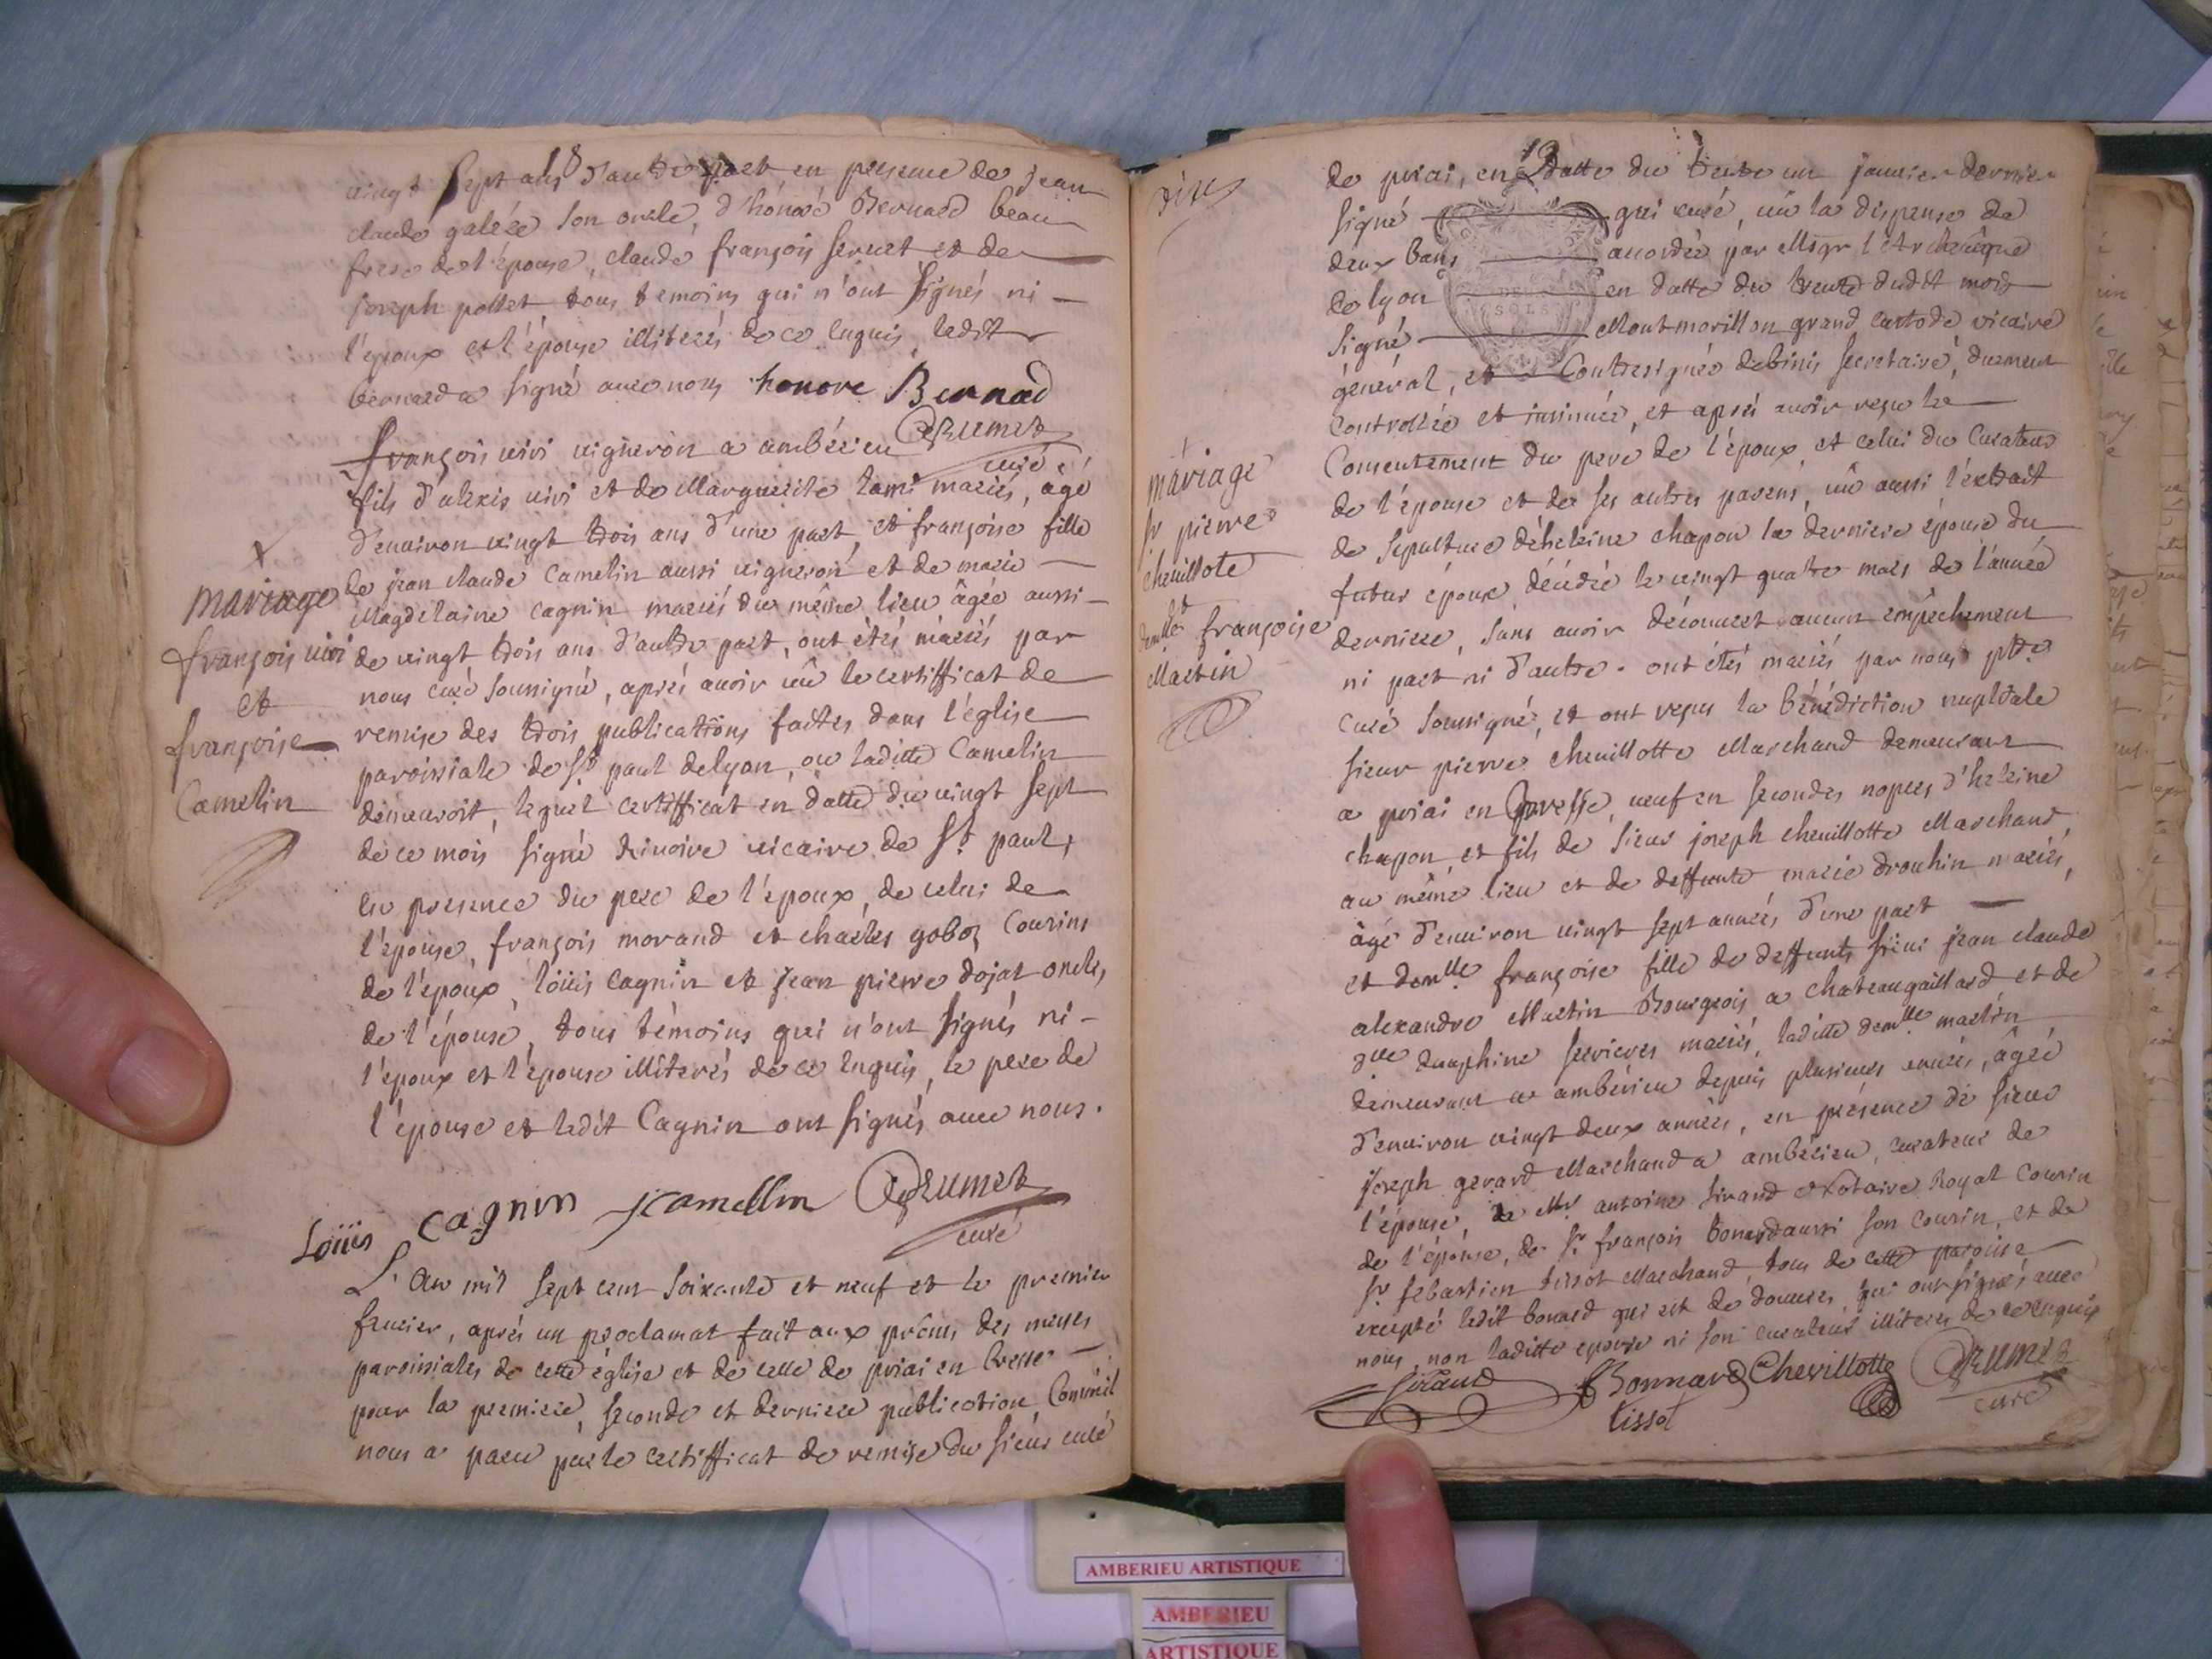 18
vingt sept ans d'autre part en presence de jean
claude galéze son oncle, d'honoré Bernard beau
frere de l'épouse, claude françois servet et de
joseph pollet, tous temoins qui n'ont signés ni
l'epoux et l'épouse illiterés de ce enquis, ledit
bernard a signé avec nous honore Bernad
Grumet
curé
françois vivi vigneron a ambérieu
fils d'alexis vivi et de Marguerite lami mariés, agé
d'environ vingt trois ans d'une part, et françoise fille
de jean claude Camelin aussi vigneron et de marie
Magdelaine cagnin mariés du même lieu âgée aussi
de vingt trois ans d'autre part, ont étés mariés par
nous curé soussigné, aprés avoir vû le certifficat de
remise des trois publications faittes dans l'église
paroissiale de St paul de lyon, ou laditte Camelin
demeuroit, lequel certifficat en datte du vingt sept
de ce mois signé vicaire de St paul,
en presence du pere de l'époux, de celui de
l'épouse, françois morand et charles goboz Cousins
de l'époux, loüis cagnin et jean pierre dojat oncles
de l'épouse, tous témoins qui n'ont signés ni
l'époux et l'épouse illiterés de ce enquis, le pere de
l'épouse et ledit Cagnin ont signés avec nous.
Loüis cagnin jcamellin Grumet
curé
L'an mil sept cent soixante et neuf et le premier
fevrier, aprés un proclamat fait aux prônes des messes
paroissiales de cette église et de celle de priai en bresse
pour la premiere, seconde et derniere publication Comme il
nous a paru par le certifficat de remise du sieur curé
mariage
françois vivi
et
françoise
Camelin
dix
mariage
sr pierre
chevillote
et
demlle françoise
Martin
19
de priai, en datte du trente un janvier dernier
signé gui curé, vû la dispense de
deux bans accordée par Msgr l'Archevêque
de lyon en datte du trente dudit mois
signé Montmorillon grand custode vicaire
DEUX
SOLS
général, et Contresignée debinis secretaire, duement
controllée et insinuée, et aprés avoir reçu le
Consentement du pere de l'époux et celui du Curateur
de l'épouse et de ses autres parens, vû aussi l'extrait
de sepulture d'heleine chapon la derniere épouse du
futur époux, décédée le vingt quatre mars de l'année
derniere, sans avoir découvert aucun empéchement
ni part ni d'autre. ont étés mariés par nous ptre
curé soussigné, et ont reçus la bénédiction nuptiale
sieur pierre chevillotte Marchand demeurant
a priai en Bresse, veuf en secondes nopces d'heleine
chapon, et fils de sieur joseph chevillotte Marchand
au même lieu et de deffunte marie drouhin mariés,
âgé d'environ vingt sept années d'une part
et demlle françoise fille de deffunts sieur jean claude
alexandre Martin Bourgeois a chateaugaillard et de
dlle dauphine servieres mariés, laditte demlle martin
demeurant a ambérieu depuis plusieurs années, âgée
d'environ vingt deux années, en présence de sieur
joseph gerard Marchand a ambérieu, curateur de
l'épouse, de Mr antoine sirand Notaire Royal Cousin
de l'épouse, de sr françois bonard aussi son cousin, et de
sr sebastien tissot Marchand, tous de cette paroisse
excepté ledit bonard qui est de douvres, qui ont signés avec
nous, non laditte epouse ni son curateur illiteres de ce enquis
Sirand Bonnard Chevillotte Grumet
tissot
curé
AMBERIEU ARTISTIQUE
AMBERIEU
ARTISTIQUE